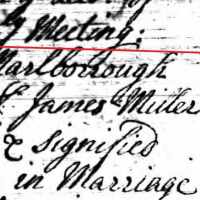 Meeting:
Marlborough
James Miller
& signified
in Marriage